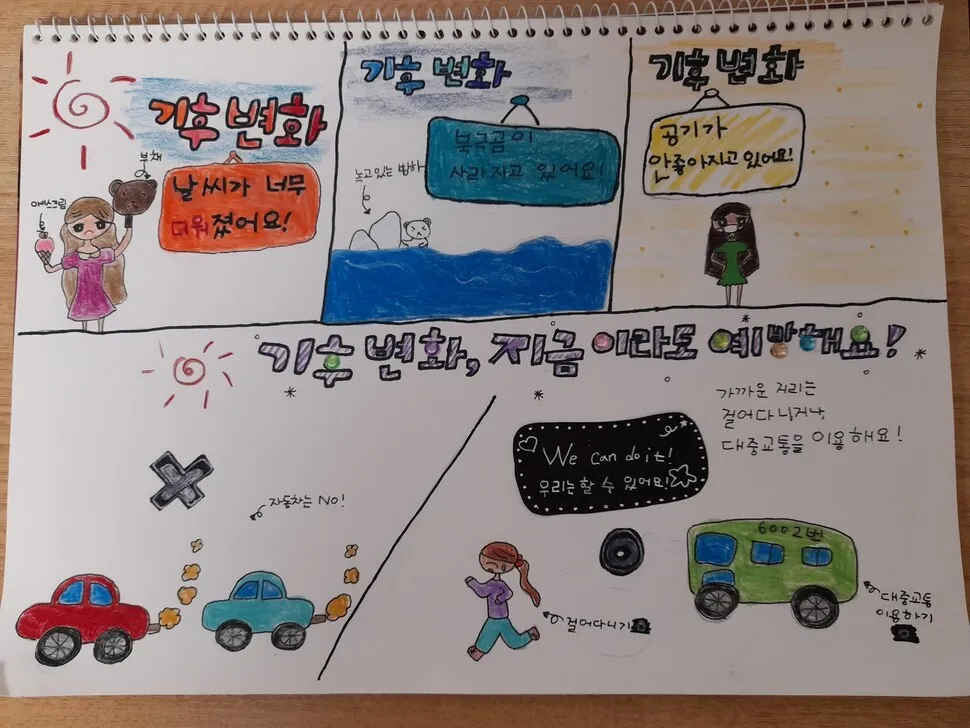 기후 변화
부채
아이스크림
날씨가 너무
더워졌어요!
기후 변화
북극곰이
사라지고 있어요!
녹고있는 빙하
기후 변화
공기가
안좋아지고 있어요!
기후 변화, 지금 이라도 예방해요!
자동차는 NO!
We can do it!
우리는 할 수 있어요!
가까운 거리는
걸어다니거나,
대중교통을 이용해요!
6002번
걸어다니기
대중교통
이용하기